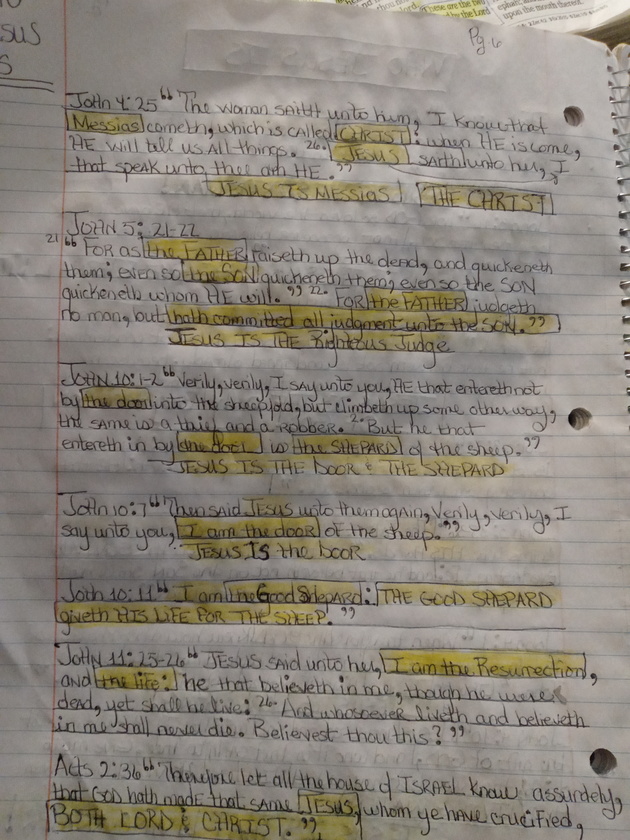 JESUS
S
ephah:
upon the mouth thereof.
by the Lord
Pg 6
John 4:25 “The woman saith unto him, I know that
Messias cometh, which is called CHRIST: when HE is come,
HE will tell us All things. 26. JESUS saith unto her, I
that speak unto thee am HE.”
JESUS IS MESSIAS THE CHRIST
JOHN 5:21-22
21 “FOR as the FATHER raiseth up the dead, and quickeneth
them; even so the SON quickeneth them; even so the SON
quickeneth whom HE will.” 22. FOR the FATHER judgeth
no man, but hath committed all judgment unto the SON.”
JESUS IS THE Righteous Judge
JOHN 10:1-2 “Verily, verily, I say unto you, HE that entereth not
by the door into the sheepfold, but climbeth up some other way,
the same is a thief and a robber. 2. But he that
entereth in by the door is the SHEPARD of the sheep.”
JESUS IS THE DOOR & THE SHEPARD
John 10:7 “Then said JESUS unto them again, Verily, verily, I
say unto you, I am the door of the sheep.”
JESUS IS the DOOR
John 10:11 “I am the Good Shepard: THE GOOD SHEPARD
giveth HIS LIFE FOR THE SHEEP.”
JOHN 11:25-26 “JESUS said unto her, I am the Resurrection,
and the life: he that believeth in me, though he were
dead, yet shall he live: 26. And whosoever liveth and believeth
in me shall never die. Believest thou this?”
Acts 2:36 “Therefore let all the house of ISRAEL know assuredly,
that GOD hath made that same JESUS, whom ye have crucified,
BOTH LORD & CHRIST.”